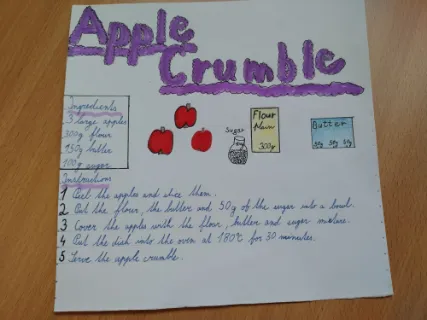 Apple
Crumble
Ingredients
3 large apples
300g flour
150g butter
100g sugar
Sugar
Flour
Plain
300g
Butter
50g 50g 50g
Instructions
1 Peel the apples and slice them.
2 Put the flour, the butter and 50g of the sugar into a bowl.
3 Cover the apples with the flour, butter and sugar mixture.
4 Put the dish into the oven at 180°C for 30 minutes.
5 Serve the apple crumble.